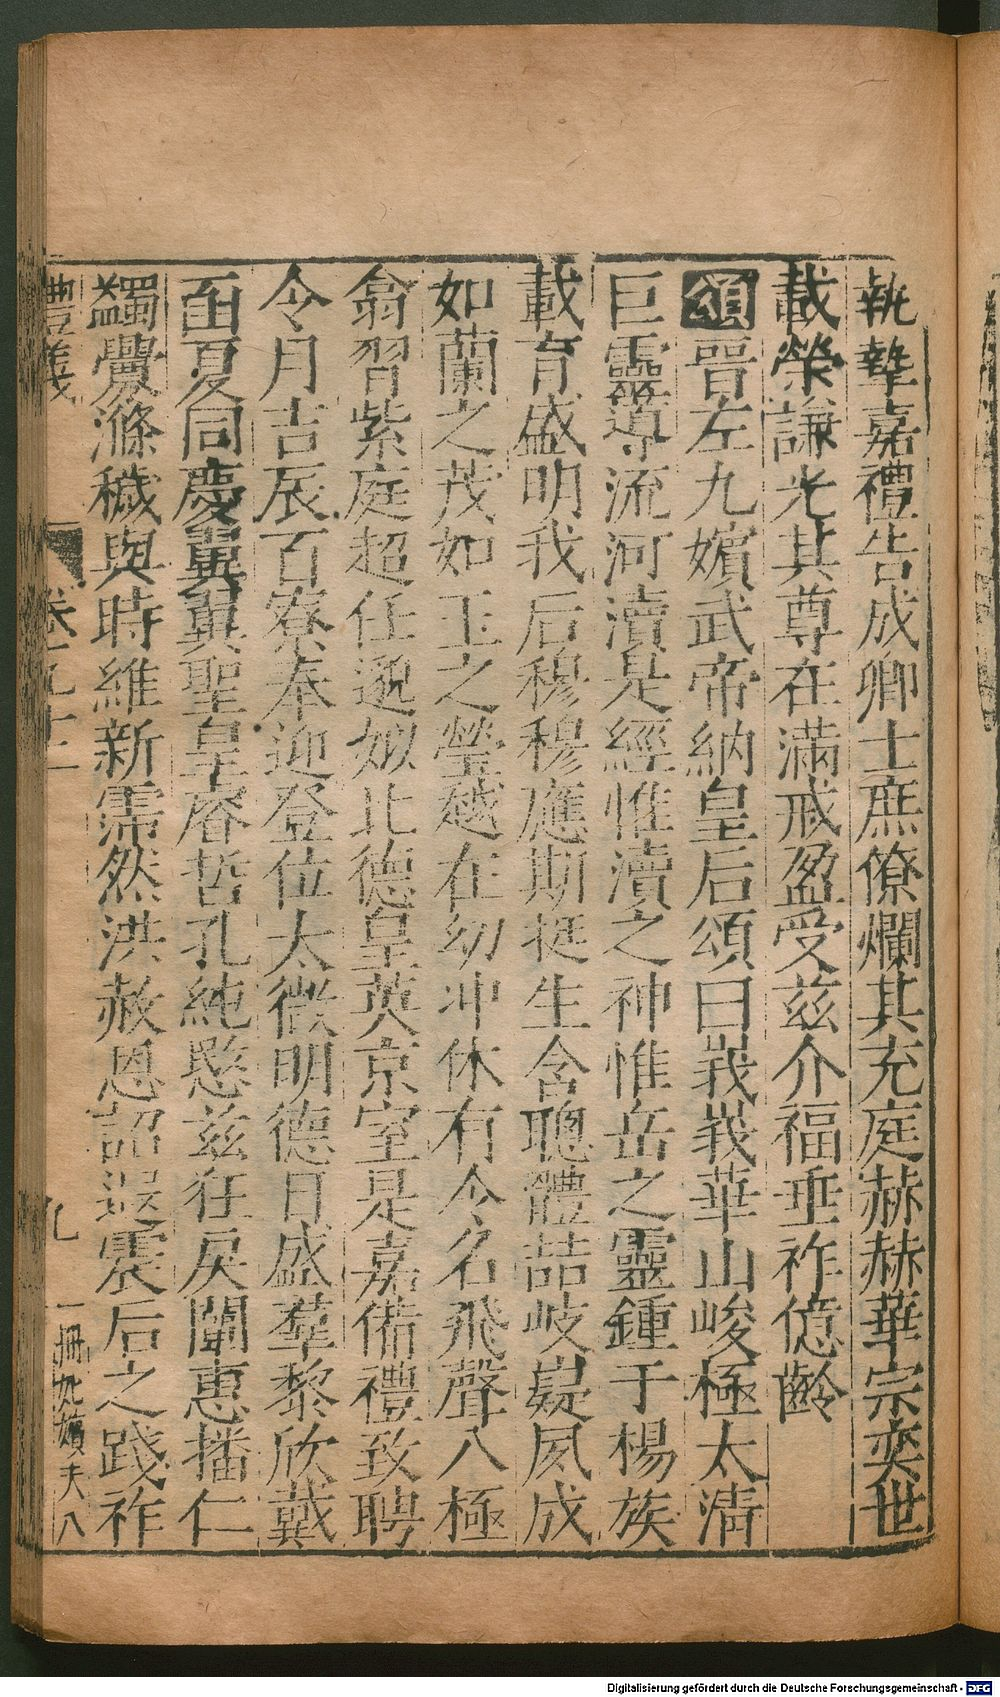 執摯嘉禮告成卿士庶僚爛其充庭赫赫華宗奕世
載榮謙光其尊在滿戒盈受兹介福垂祚億齡
頌晉左九嬪武帝納皇后頌曰峩峩華山峻極太清
巨靈導流河瀆是經惟瀆之神惟岳之靈鍾于楊族
載育盛明我后穆穆應期挺生含聰體喆岐嶷夙成
如蘭之茂如玉之瑩越在幼冲休有令名飛聲八極
翕習紫庭超任邈姒比德皇英京室是嘉備禮致聘
令月吉辰百寮奉迎登位太微明德日盛羣黎欣戴
函夏同慶翼翼聖皇睿哲孔純愍兹狂戾闡惠播仁
蠲釁滌穢與時維新霈然洪赦恩詔遐震后之踐祚
禮義 卷之九十二 九 一冊妃嬪夫八
Digitalisierung gefördert durch die Deutsche Forschungsgemeinschaft - DFG